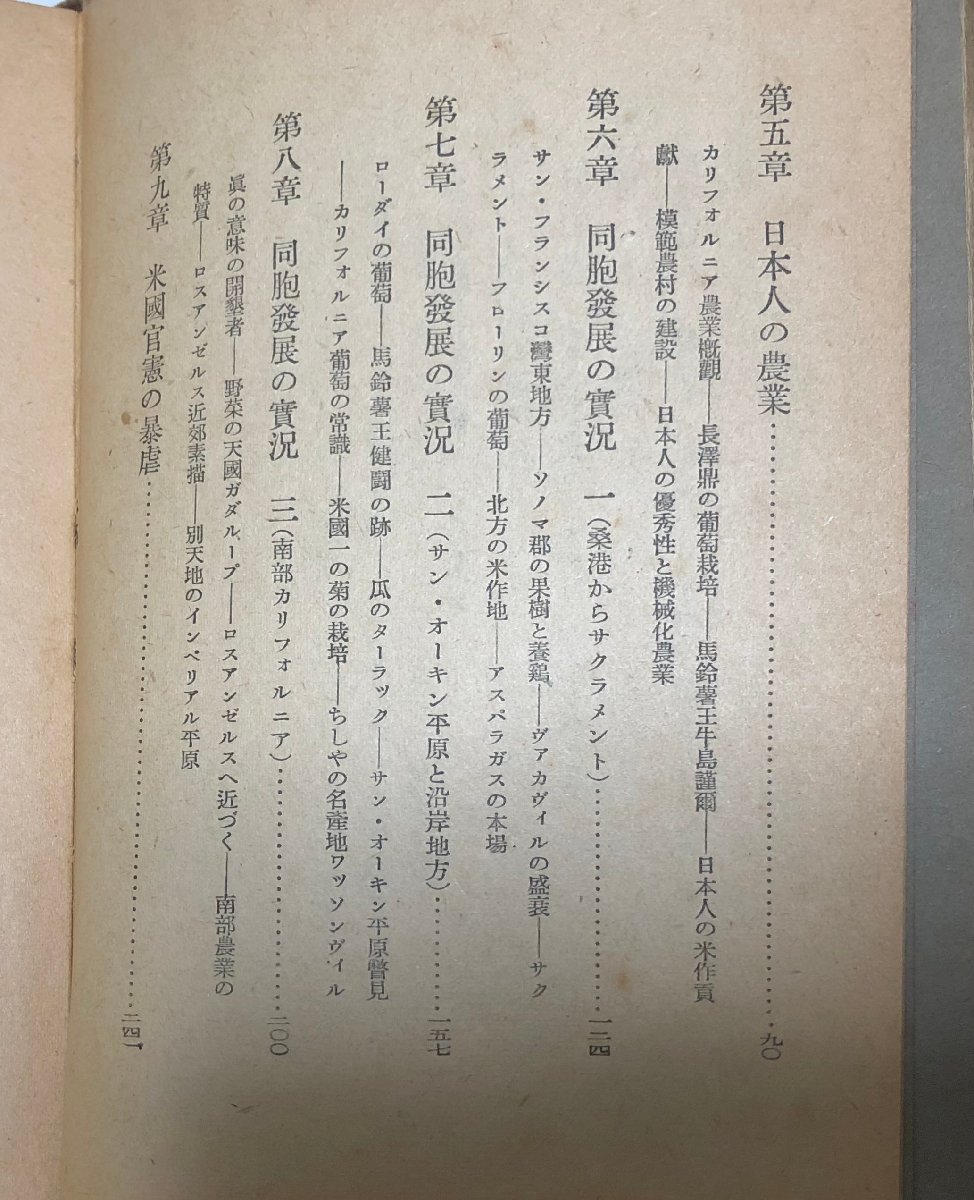 第五章　日本人の農業……………………九〇
カリフォルニア農業槪觀――長澤鼎の葡萄栽培――馬鈴薯王牛島謹爾――日本人の米作貢
獻――模範農村の建設――日本人の優秀性と機械化農業
第六章　同胞發展の實況　一（桑港からサクラメント）……………………一二四
サン・フランシスコ灣東地方――ソノマ郡の果樹と養鷄――ヴァカヴィルの盛衰――サク
ラメント――フローリンの葡萄――北方の米作地――アスパラガスの本場
第七章　同胞發展の實況　二（サン・オーキン平原と沿岸地方）…………一五七
ローダイの葡萄――馬鈴薯王健鬪の跡――瓜のターラック――サン・オーキン平原瞥見
――カリフォルニア葡萄の常識――米國一の菊の栽培――ちしやの名產地ワッソンヴィル
第八章　同胞發展の實況　三（南部カリフォルニア）……………………二〇〇
眞の意味の開墾者――野菜の天國ガダループ――ロスアンゼルスへ近づく――南部農業の
特質――ロスアンゼルス近郊素描――別天地のインペリアル平原
第九章　米國官憲の暴虐……………………二四一